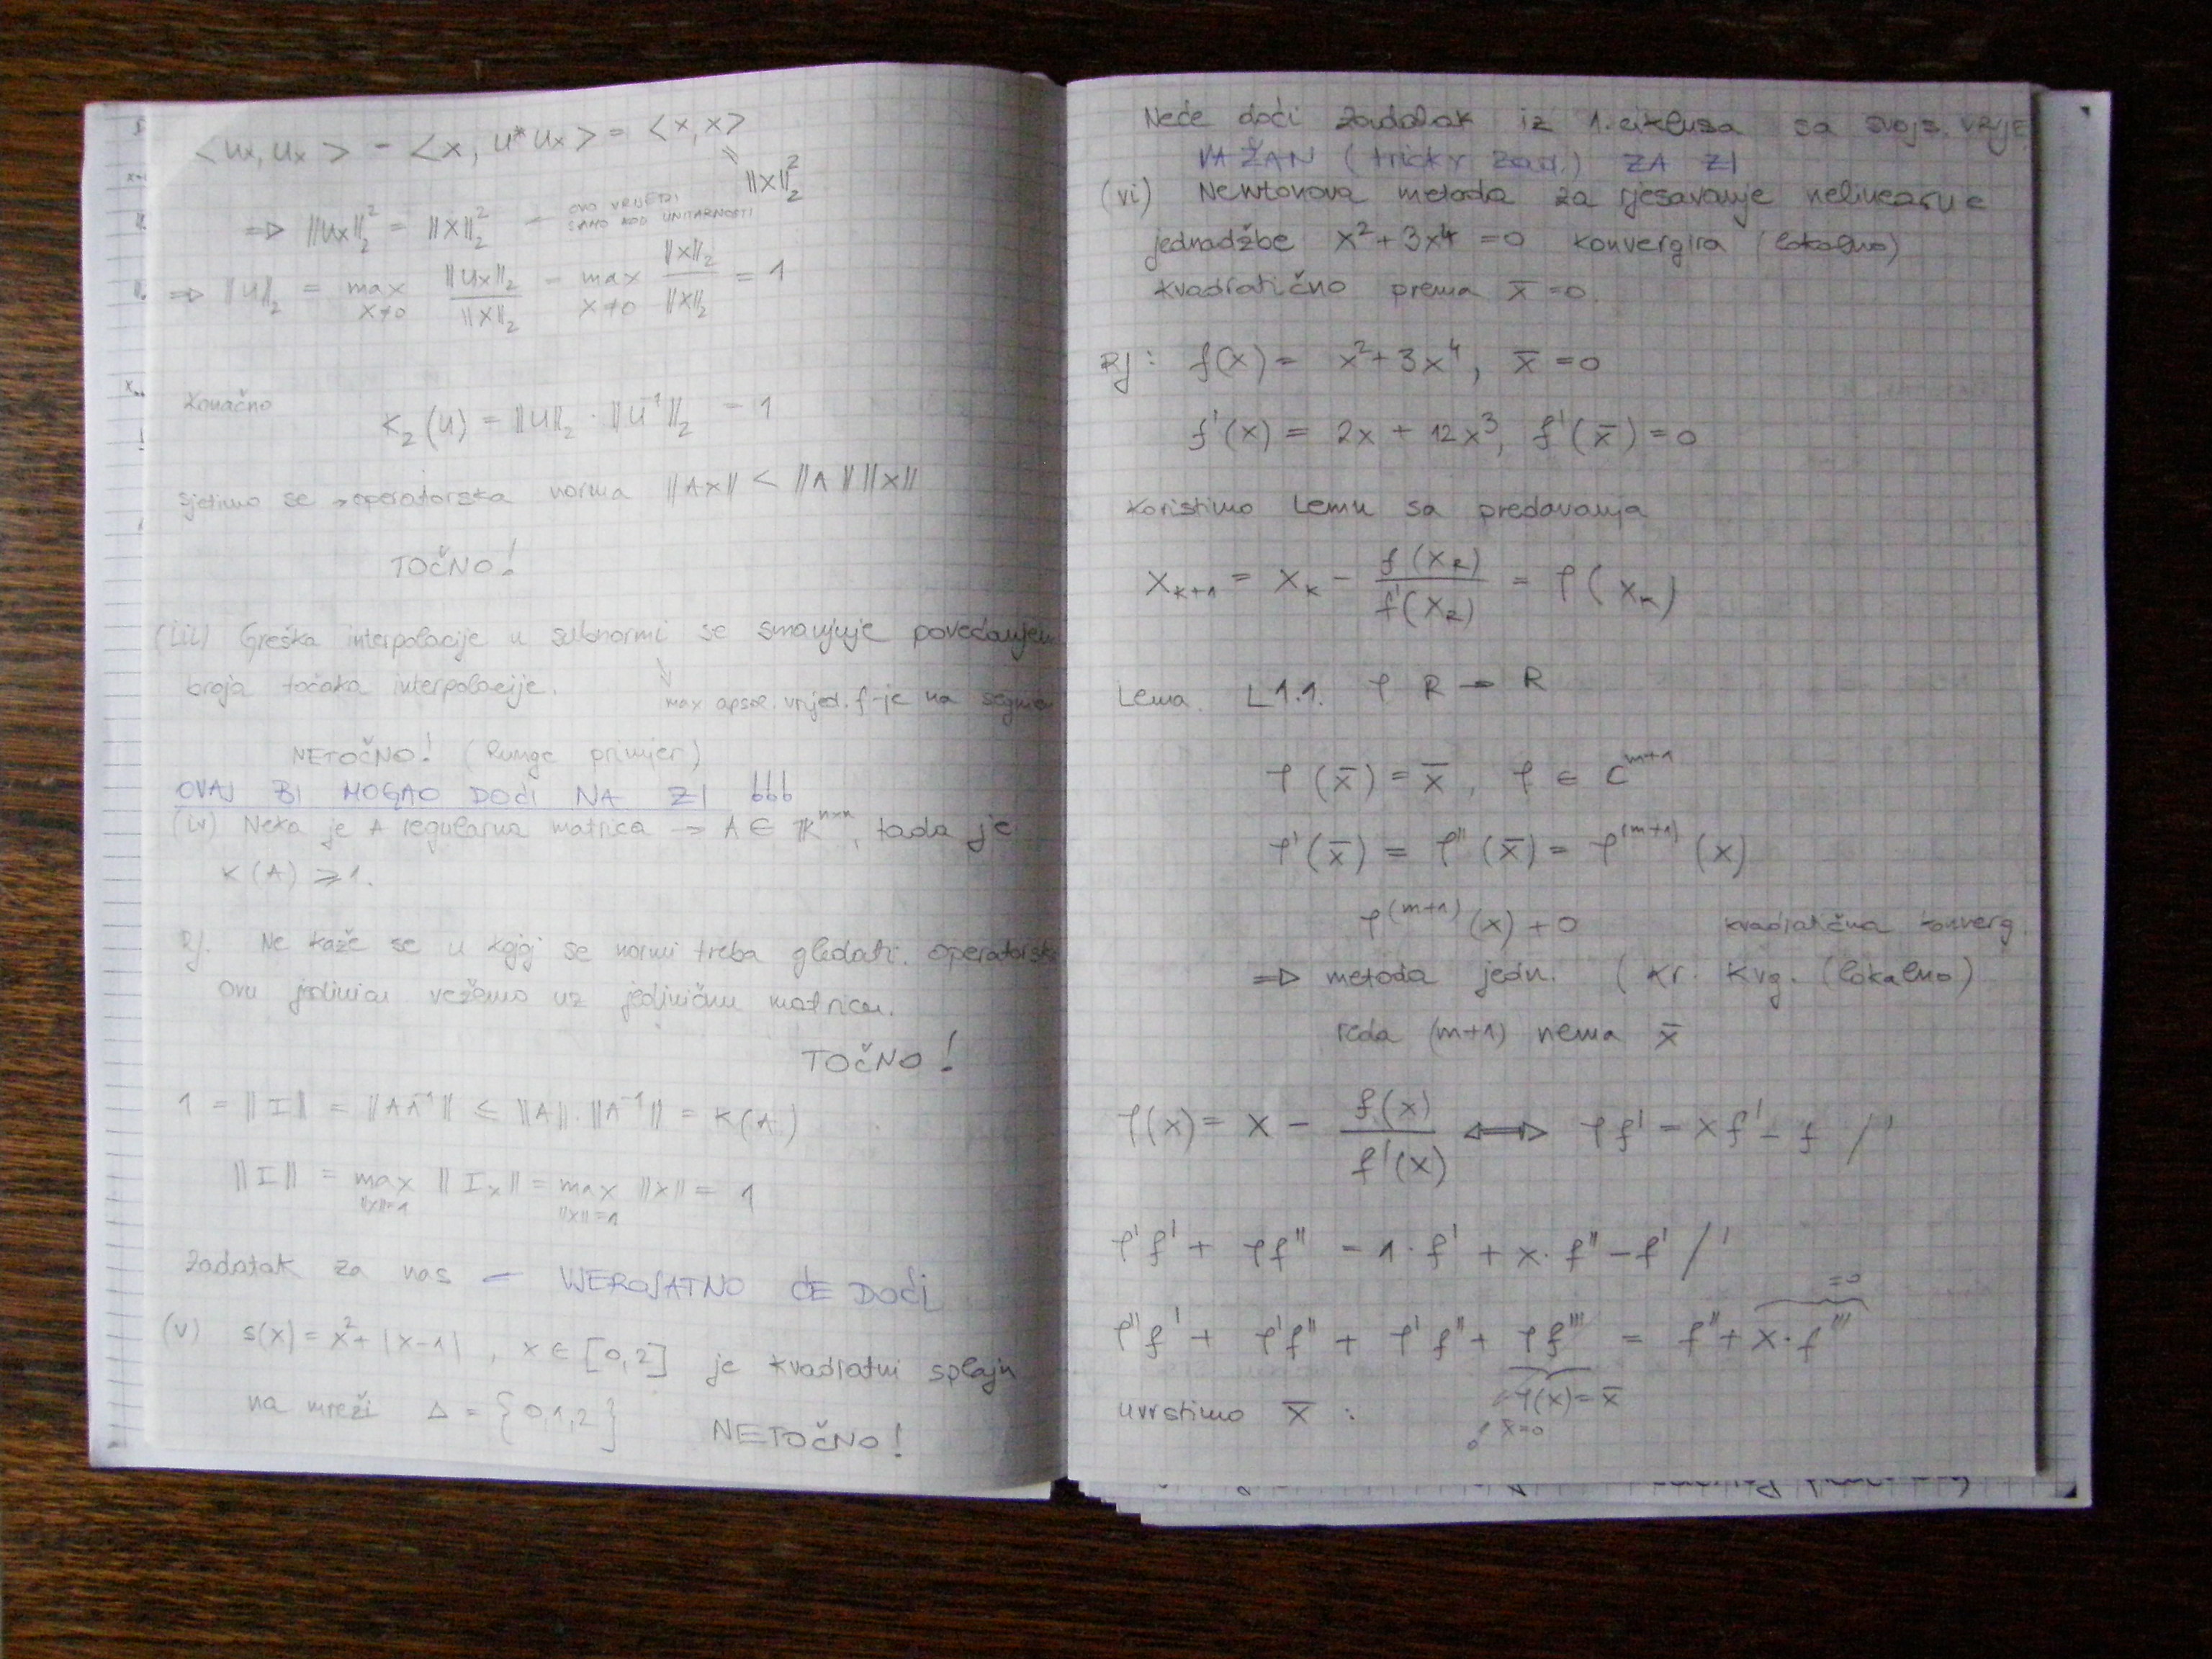 <Ux, Ux> = <x, U*Ux> = <x, x>
||x||₂²
=> ||Ux||₂² = ||x||₂² – OVO VRIJEDI
SAMO KOD UNITARNOSTI
=> ||U||₂ = max x≠0 ||Ux||₂ / ||x||₂ = max x≠0 ||x||₂ / ||x||₂ = 1
Konačno
K₂(U) = ||U||₂ · ||U⁻¹||₂ = 1
sjetimo se → operatorska norma ||Ax|| < ||A|| ||x||
TOČNO!
(iii) Greška interpolacije u subnormi se smanjuje povećanjem
broja točaka interpolacije.
max apsol. vrijed. f-je na
NETOČNO! (Runge primjer)
OVAJ BI MOGAO DOĆI NA ZI !!!
(iv) Neka je A regularna matrica → A ∈ ℝⁿˣⁿ, tada je
K(A) ≥ 1.
Rj. Ne kaže se u kojoj se normi treba gledati.
ovu jedinicu vežemo uz jediničnu matricu.
TOČNO!
1 = ||I|| = ||AA⁻¹|| ≤ ||A|| · ||A⁻¹|| = K(A)
||I|| = max ||x||=1 ||Ix|| = max ||x||=1 ||x|| = 1
Zadatak za nas – VJEROJATNO ĆE DOĆI
(v) s(x) = x² + |x-1|, x ∈ [0,2] je kvadratni splajn
na mreži Δ = {0,1,2}
NETOČNO!
Neće doći zadatak iz 1. ciklusa sa svojs. VRIJE
VAŽAN (tricky zad.) ZA ZI
(vi) Newtonova metoda za rjesavanje nelinearne
jednadžbe x² + 3x⁴ = 0 konvergira (lokalno)
kvadratično prema x̄ = 0.
Rj: f(x) = x² + 3x⁴, x̄ = 0
f'(x) = 2x + 12x³, f'(x̄) = 0
Koristimo Lemu sa predavanja
xₖ₊₁ = xₖ - f(xₖ) / f'(xₖ) = φ(xₖ)
Lema L1.1. φ R → R
φ(x̄) = x̄, φ ∈ Cᵐ⁺¹
φ'(x̄) = φ''(x̄) = φ⁽ᵐ⁺¹⁾(x)
φ⁽ᵐ⁺¹⁾(x) + 0 kvadratična konverg.
=> metoda jedn. (kr. kvg. (lokalno)
reda (m+1) nema x̄
φ(x) = x - f(x) / f'(x) <=> φf' = xf' - f /'
φ'f' + φf'' = 1·f' + x·f'' - f' /'
=0
φ''f' + φ'f'' + φ'f'' + φf''' = f'' + x·f'''
φ(x) = x̄
uvrstimo x̄ :
x̄=0